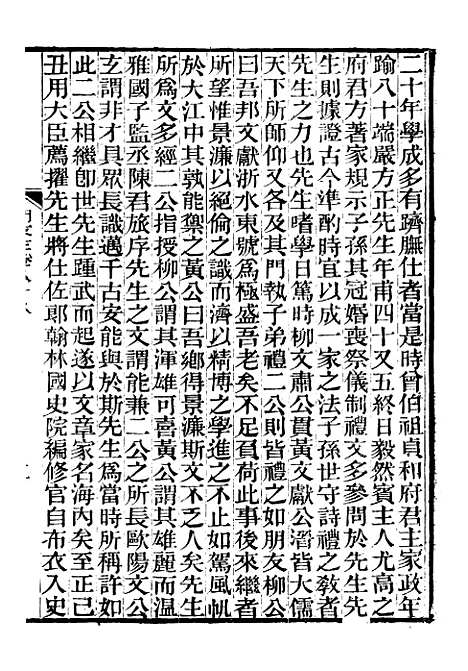 二十年學成多有躋膴仕者當是時曾伯祖貞和府君主家政年
踰八十端嚴方正先生年甫四十又五終日毅然賓主人尤高之
府君方著家規示子孫其冠婚喪祭儀制禮文多參問於先生先
生則據證古今準酌時宜以成一家之法子孫世守詩禮之敎者
先生之力也先生嗜學日篤時柳文肅公貫黃文獻公溍皆大儒
天下所師仰又各及其門執子弟禮二公則皆禮之如朋友柳公
曰吾邦文獻浙水東號為極盛吾老矣不足負荷此事後來繼者
所望惟景濂以絕倫之識而濟以精博之學進之不止如駕風帆
於大江中其孰能禦之黃公曰吾鄉得景濂斯文不乏人矣先生
所為文多經二公指授柳公謂其渾雄可喜黃公謂其雄麗而溫
雅國子監丞陳君旅序先生之文謂能兼二公之所長歐陽文公
玄謂非才具眾長識邁千古安能與於斯先生為當時所稱許如
此二公相繼卽世先生踵武而起遂以文章家名海內矣至正己
丑用大臣薦擢先生將仕佐郎翰林國史院編修官自布衣入史